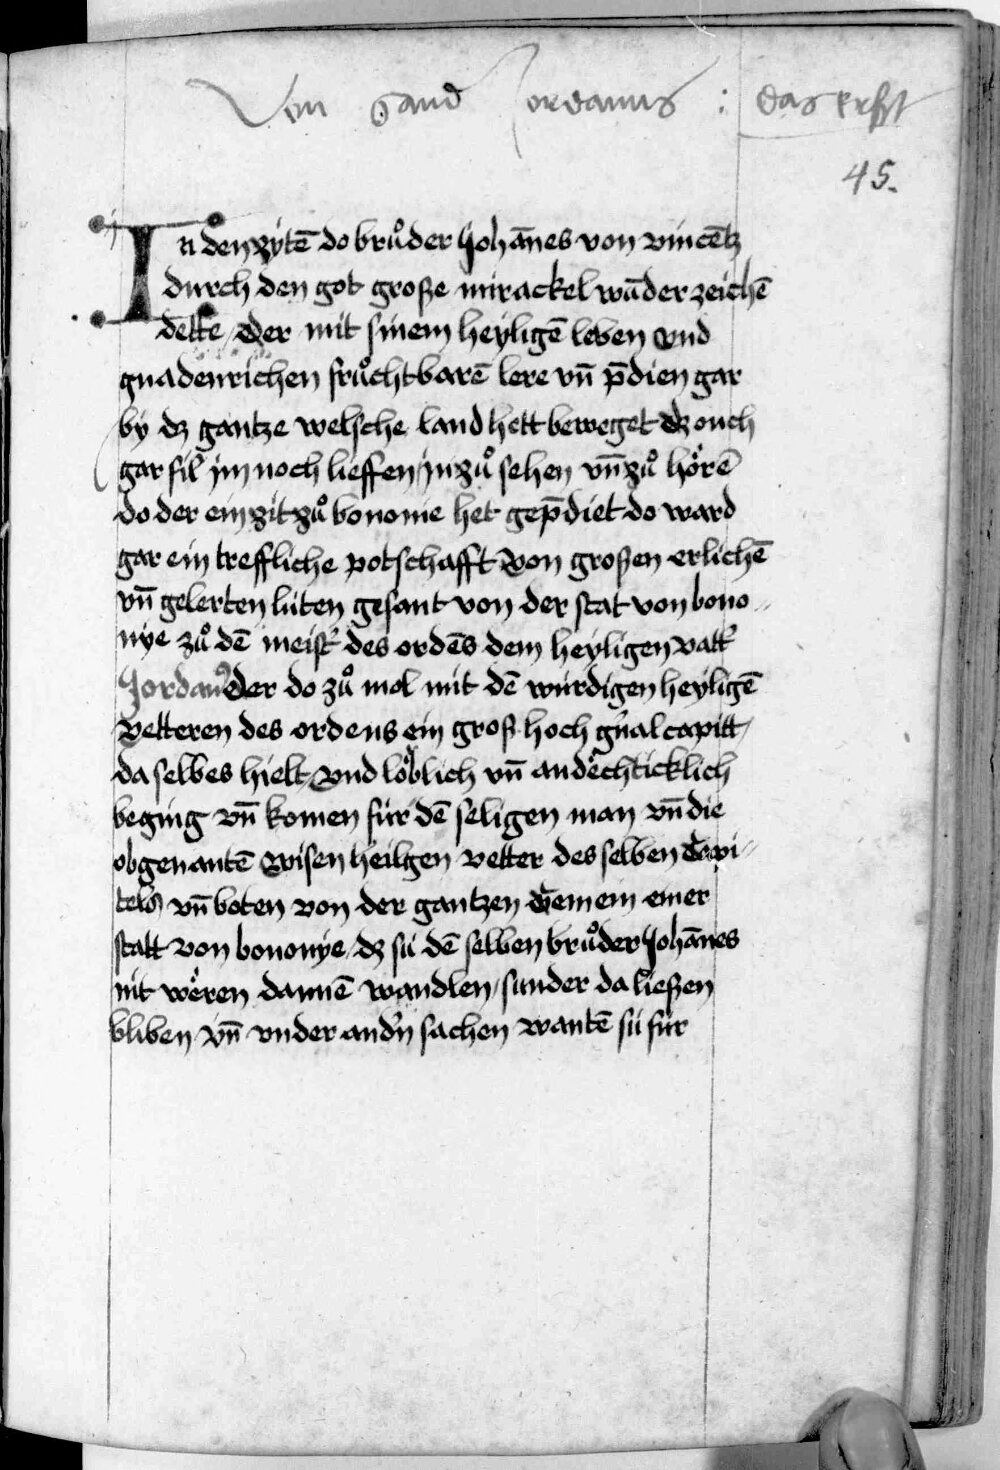 Von Sand Jordanus : das erst
45.
In den zÿtē do brůder Johānes von vincētz
durch den got große mirackel wūder zeichē
dette / der mit sinem heÿligē leben vnd
gnadenrichen frůchtbarē lere vn̄ p̄dien gar
bÿ dz gantze welsche land hett beweget dz ouch
gar fil jm noch lieffen jn zů sehen vn̄ zů hörē
do der ein zit zů bononie het gep̄diet do ward
gar ein treffliche potschafft von großen erlichē
vn̄ gelerten lüten gesant von der stat von bono-
nÿe zů dē meist̓ des ordēs dem heÿligen vatt̓
Jordanꝰ der do zů mol mit dē würdigen heÿligē
vetteren des ordens ein groß hoch gn̄al capitt̓
da selbes hielt / vnd löblich vn̄ andechticklich
beging vn̄ komen für dē seligen man vn̄ die
obgenantē wisen heilgen vetter des selben capi-
tels vn̄ boten von der gantzen gemein einer
statt von bononÿe / dz sü dē selben brůder Johānes
nit wëren dannē wandlen / sunder da ließen
bliben vn̄ vnder and̓n sachen wantē sü für